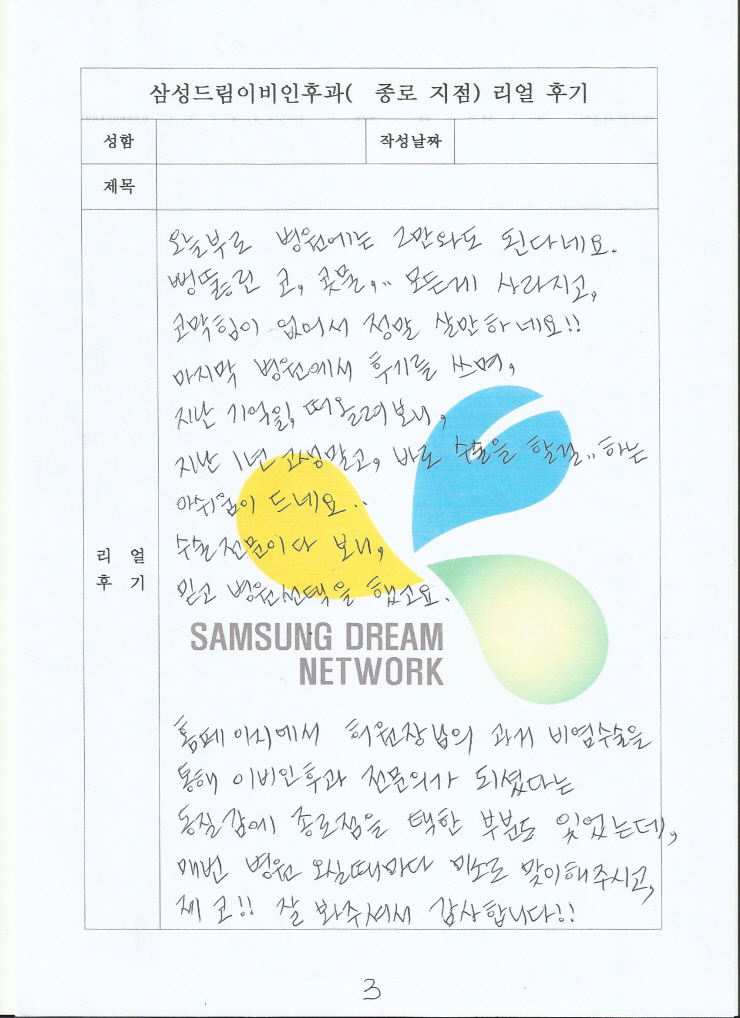 삼성드림이비인후과( 종로 지점) 리얼 후기
성함 작성날짜
제목
리 얼
후 기
오늘부로 병원에는 그만와도 된다네요.
뻥뚫린 코, 콧물,.. 모든게 사라지고,
코막힘이 없어서 정말 살만하네요!!
마지막 병원에서 후기를 쓰며,
지난 기억을, 떠올려보니,
지난 1년 고생말고, 바로 수술을 할걸.. 하는
아쉬움이 드네요..
수술전문이다 보니,
믿고 병원선택을 했고요.
SAMSUNG DREAM
NETWORK
홈페이지에서 허원장님의 과거 비염수술을
통해 이비인후과 전문의가 되셨다는
동질감에 종로점을 택한 부분도 있었는데,
매번 병원 오실때마다 미소로 맞이해주시고,
제 코!! 잘 봐주셔서 감사합니다!!
3